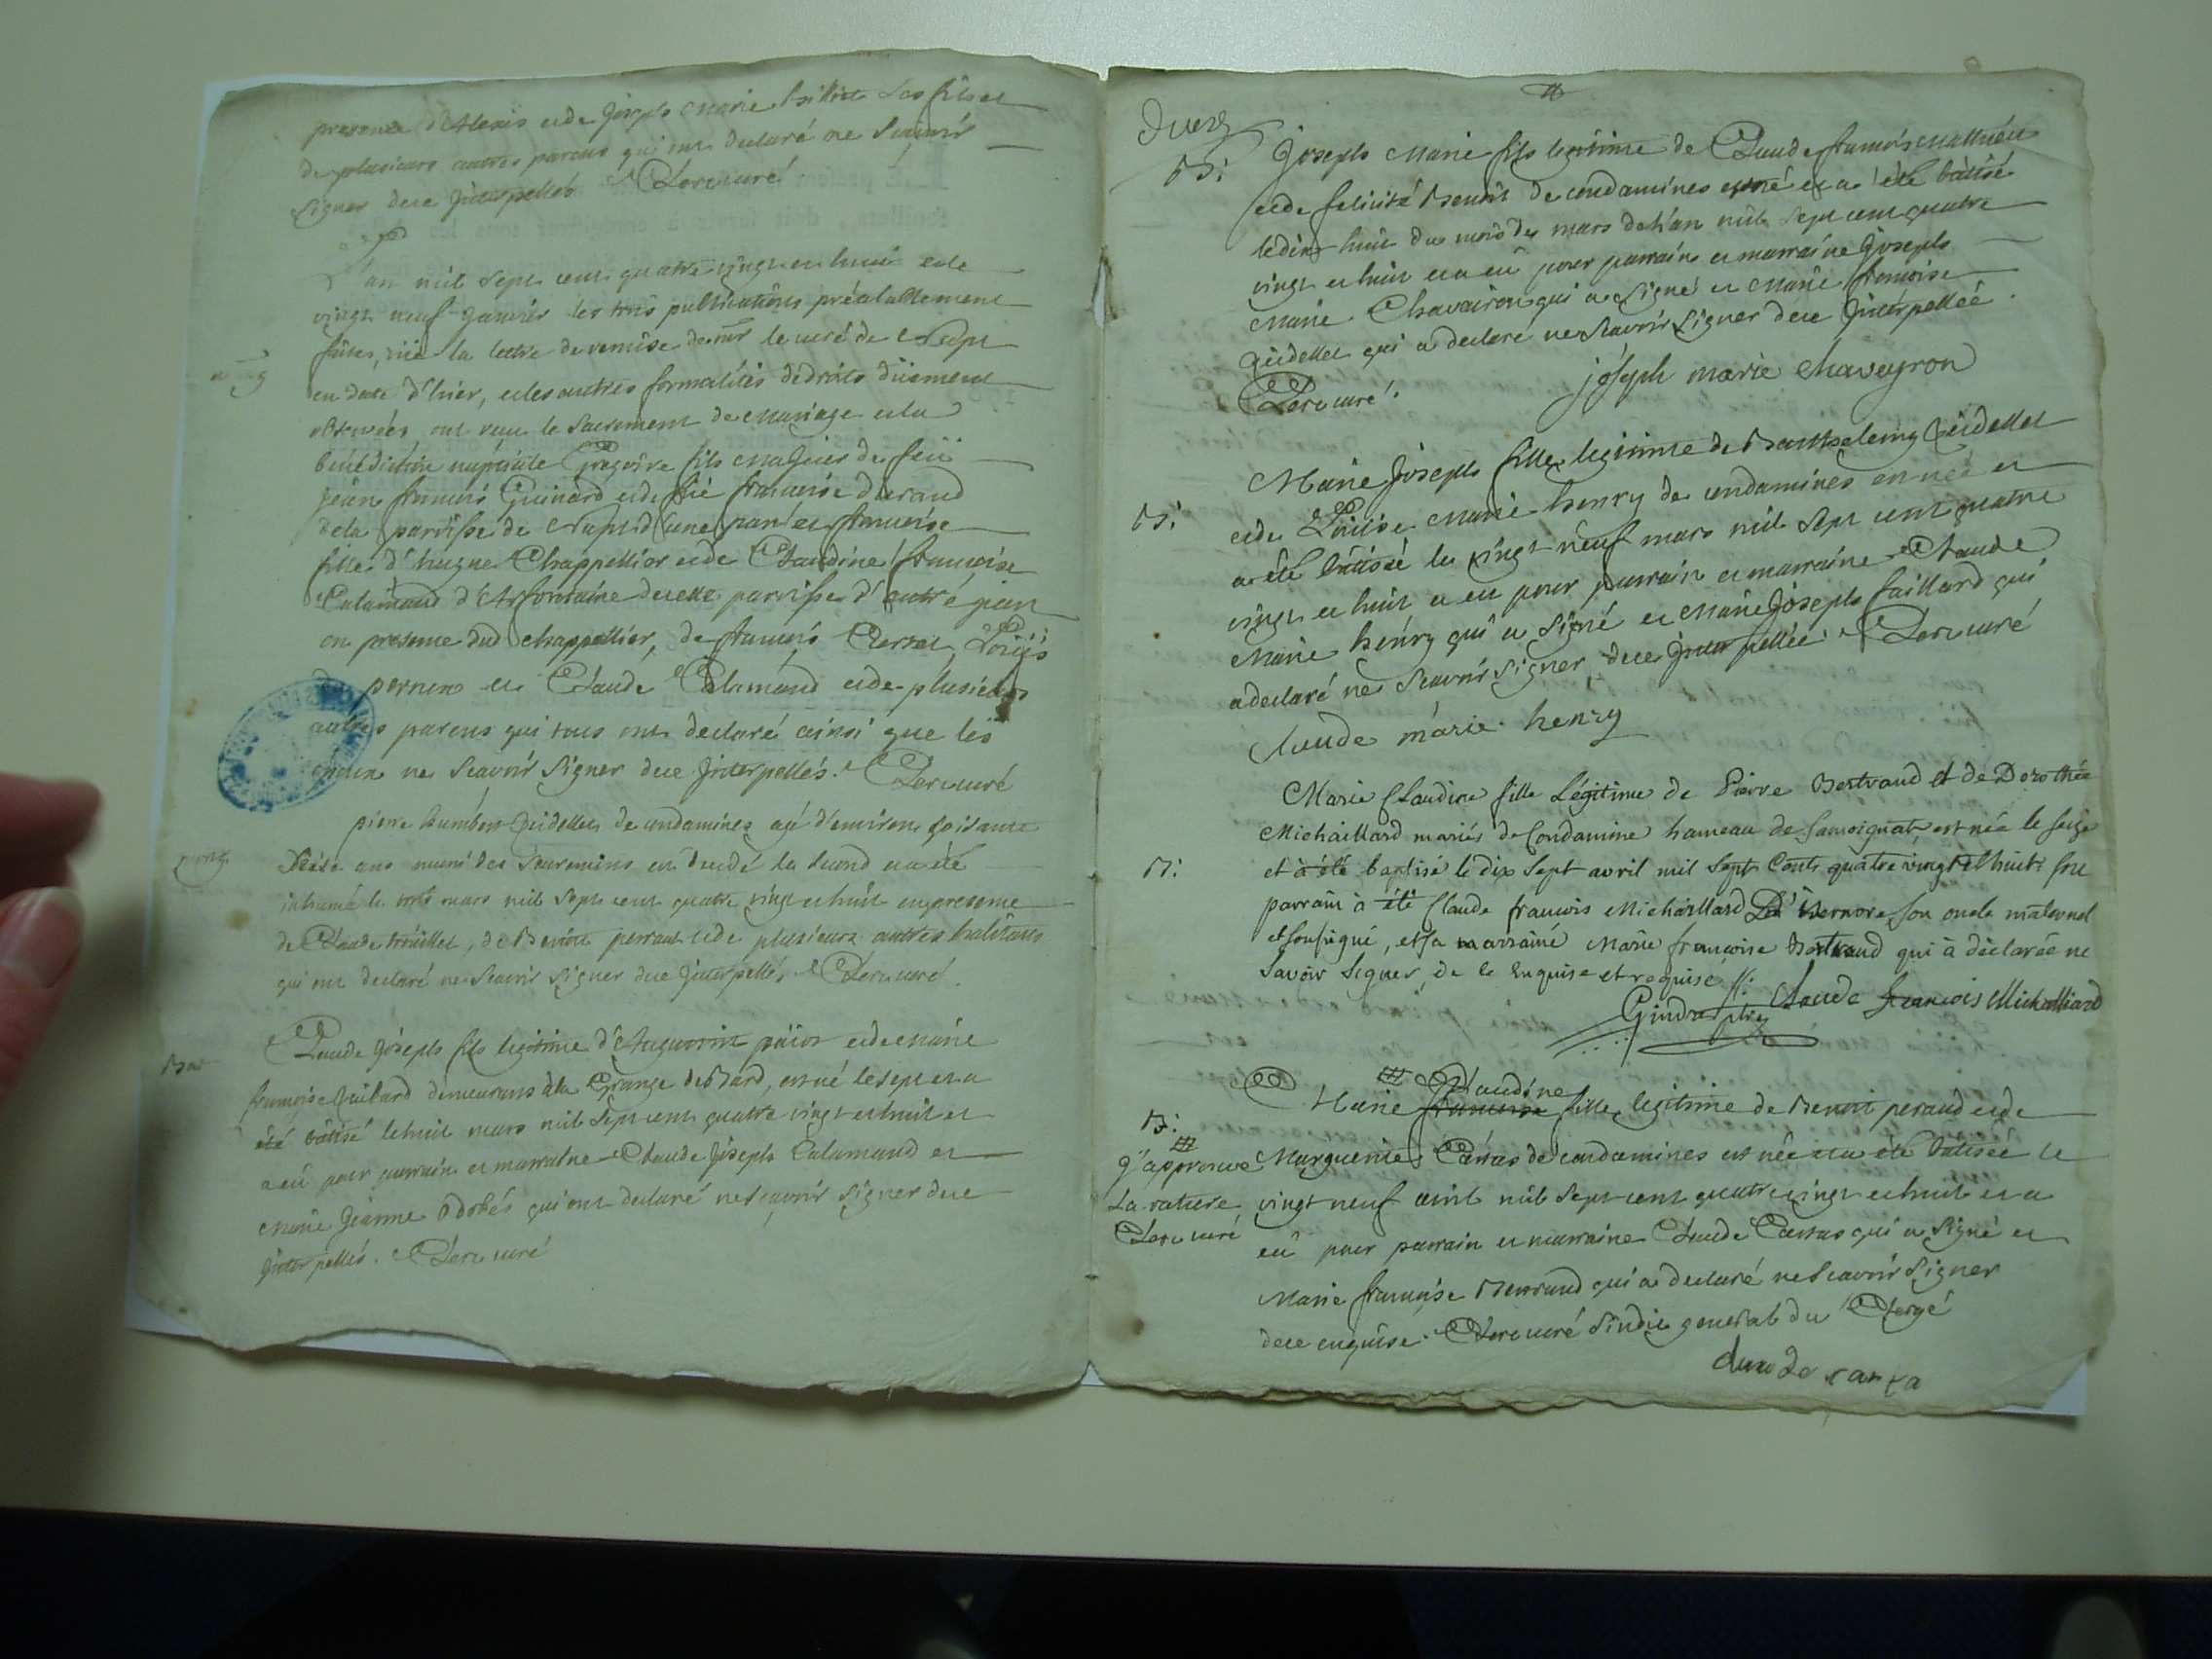 presence d'Alexis et de Joseph Marie ses fils et
de plusieurs autres parens qui ont declaré ne scavoir
signer de ce interpellés Clerc curé
L'an mil sept cent quatre vingt et huit et le
vingt neuf janvier les trois publications préalablement
faites, vüe la lettre de remise de mr le curé de
en date d'hier, et les autres formalités de droits düement
observées, ont recu le sacrement de mariage et la
bénédiction nuptiale Grégoire fils majeur de feü
jean francois Guinard et de francoise durand
de la paroisse de d'une part et francoise
fille d'hugue Chappellier et de Claudine francoise
Calamand d'Arfontaine de cette paroisse d'autre part
en presence dud chappellier, de francois Louis
pernin et Claude Calamand et de plusieurs
autres parens qui tous ont declaré ainsi que les
ne scavoir signer de ce interpellés. Clerc curé
pierre humbert Guidellet de condamines agé d'environ soixante
ans muni des sacremens est decedé la second et a été
inhumé le trois mars mil sept cent quatre vingt et huit en presence
de Claude, de Benoit perraut et de plusieurs autres habitans
qui ont declaré ne scavoir signer de ce interpellés Clerc curé.
Claude Joseph fils legitime d'Augustin et de marie
francoise demeurans à la Grange de Bard, est né le sept et a
été bâtisé le huit mars mil sept cent quatre vingt et huit et
a eû pour parrain et marraine Claude Joseph Calamand et
Marie Jeanne qui ont declaré ne scavoir signer de ce
interpellés. Clerc curé
Joseph Marie fils legitime de Claude francois Mathieu
B:
et de felicité Benoit de condamines est né et a été bâtisé
le dix huit du mois de mars de l'an mil sept cent quatre
vingt et huit et a eû pour parrain et marraine Joseph
Marie Chavairon qui a signé et Marie francoise
Guidellet qui a declaré ne scavoir signer de ce interpellée.
Clerc curé.
joseph marie chaveyron
Marie Joseph fille legitime de Barthelemy Guidellet
B:
et de Loüise Marie henry de condamines est née et
a été bâtisée le vingt neuf mars mil sept cent quatre
vingt et huit a eu pour parrain et marraine Claude
Marie henry qui a signé et Marie Joseph Caillard qui
a declaré ne scavoir signer, de ce interpellée. Clerc curé
claude marie henry
Marie Claudine fille Légitime de Pierre Bertrand et de Dorothée
Michaillard mariés de Condamine hameau de Samoignat est née le seize
B:
et à été baptisé le dix sept avril mil sept Cents quatre vingt et huit. son
parrain à été Claude francois Michaillard son oncle maternel
et sousigné, et sa marrainé Marie francoise Bertrand qui à déclarée ne
savoir signer, de ce enquise et requise
Gindre ptre Claude francois Michalliard
Claudine
Marie francoise fille legitime de Benoit peraud et de
B:
j'approuve
La rature
Clerc curé
Marguerite Carras de condamines est née et a été bâtisée le
vingt neuf avril mil sept cent quatre vingt et huit et a
eû pour parrain et marraine Claude Carras qui a signé et
Marie francoise Bertrand qui a declaré ne scavoir signer
de ce enquise. Clerc curé sindic general du Clergé